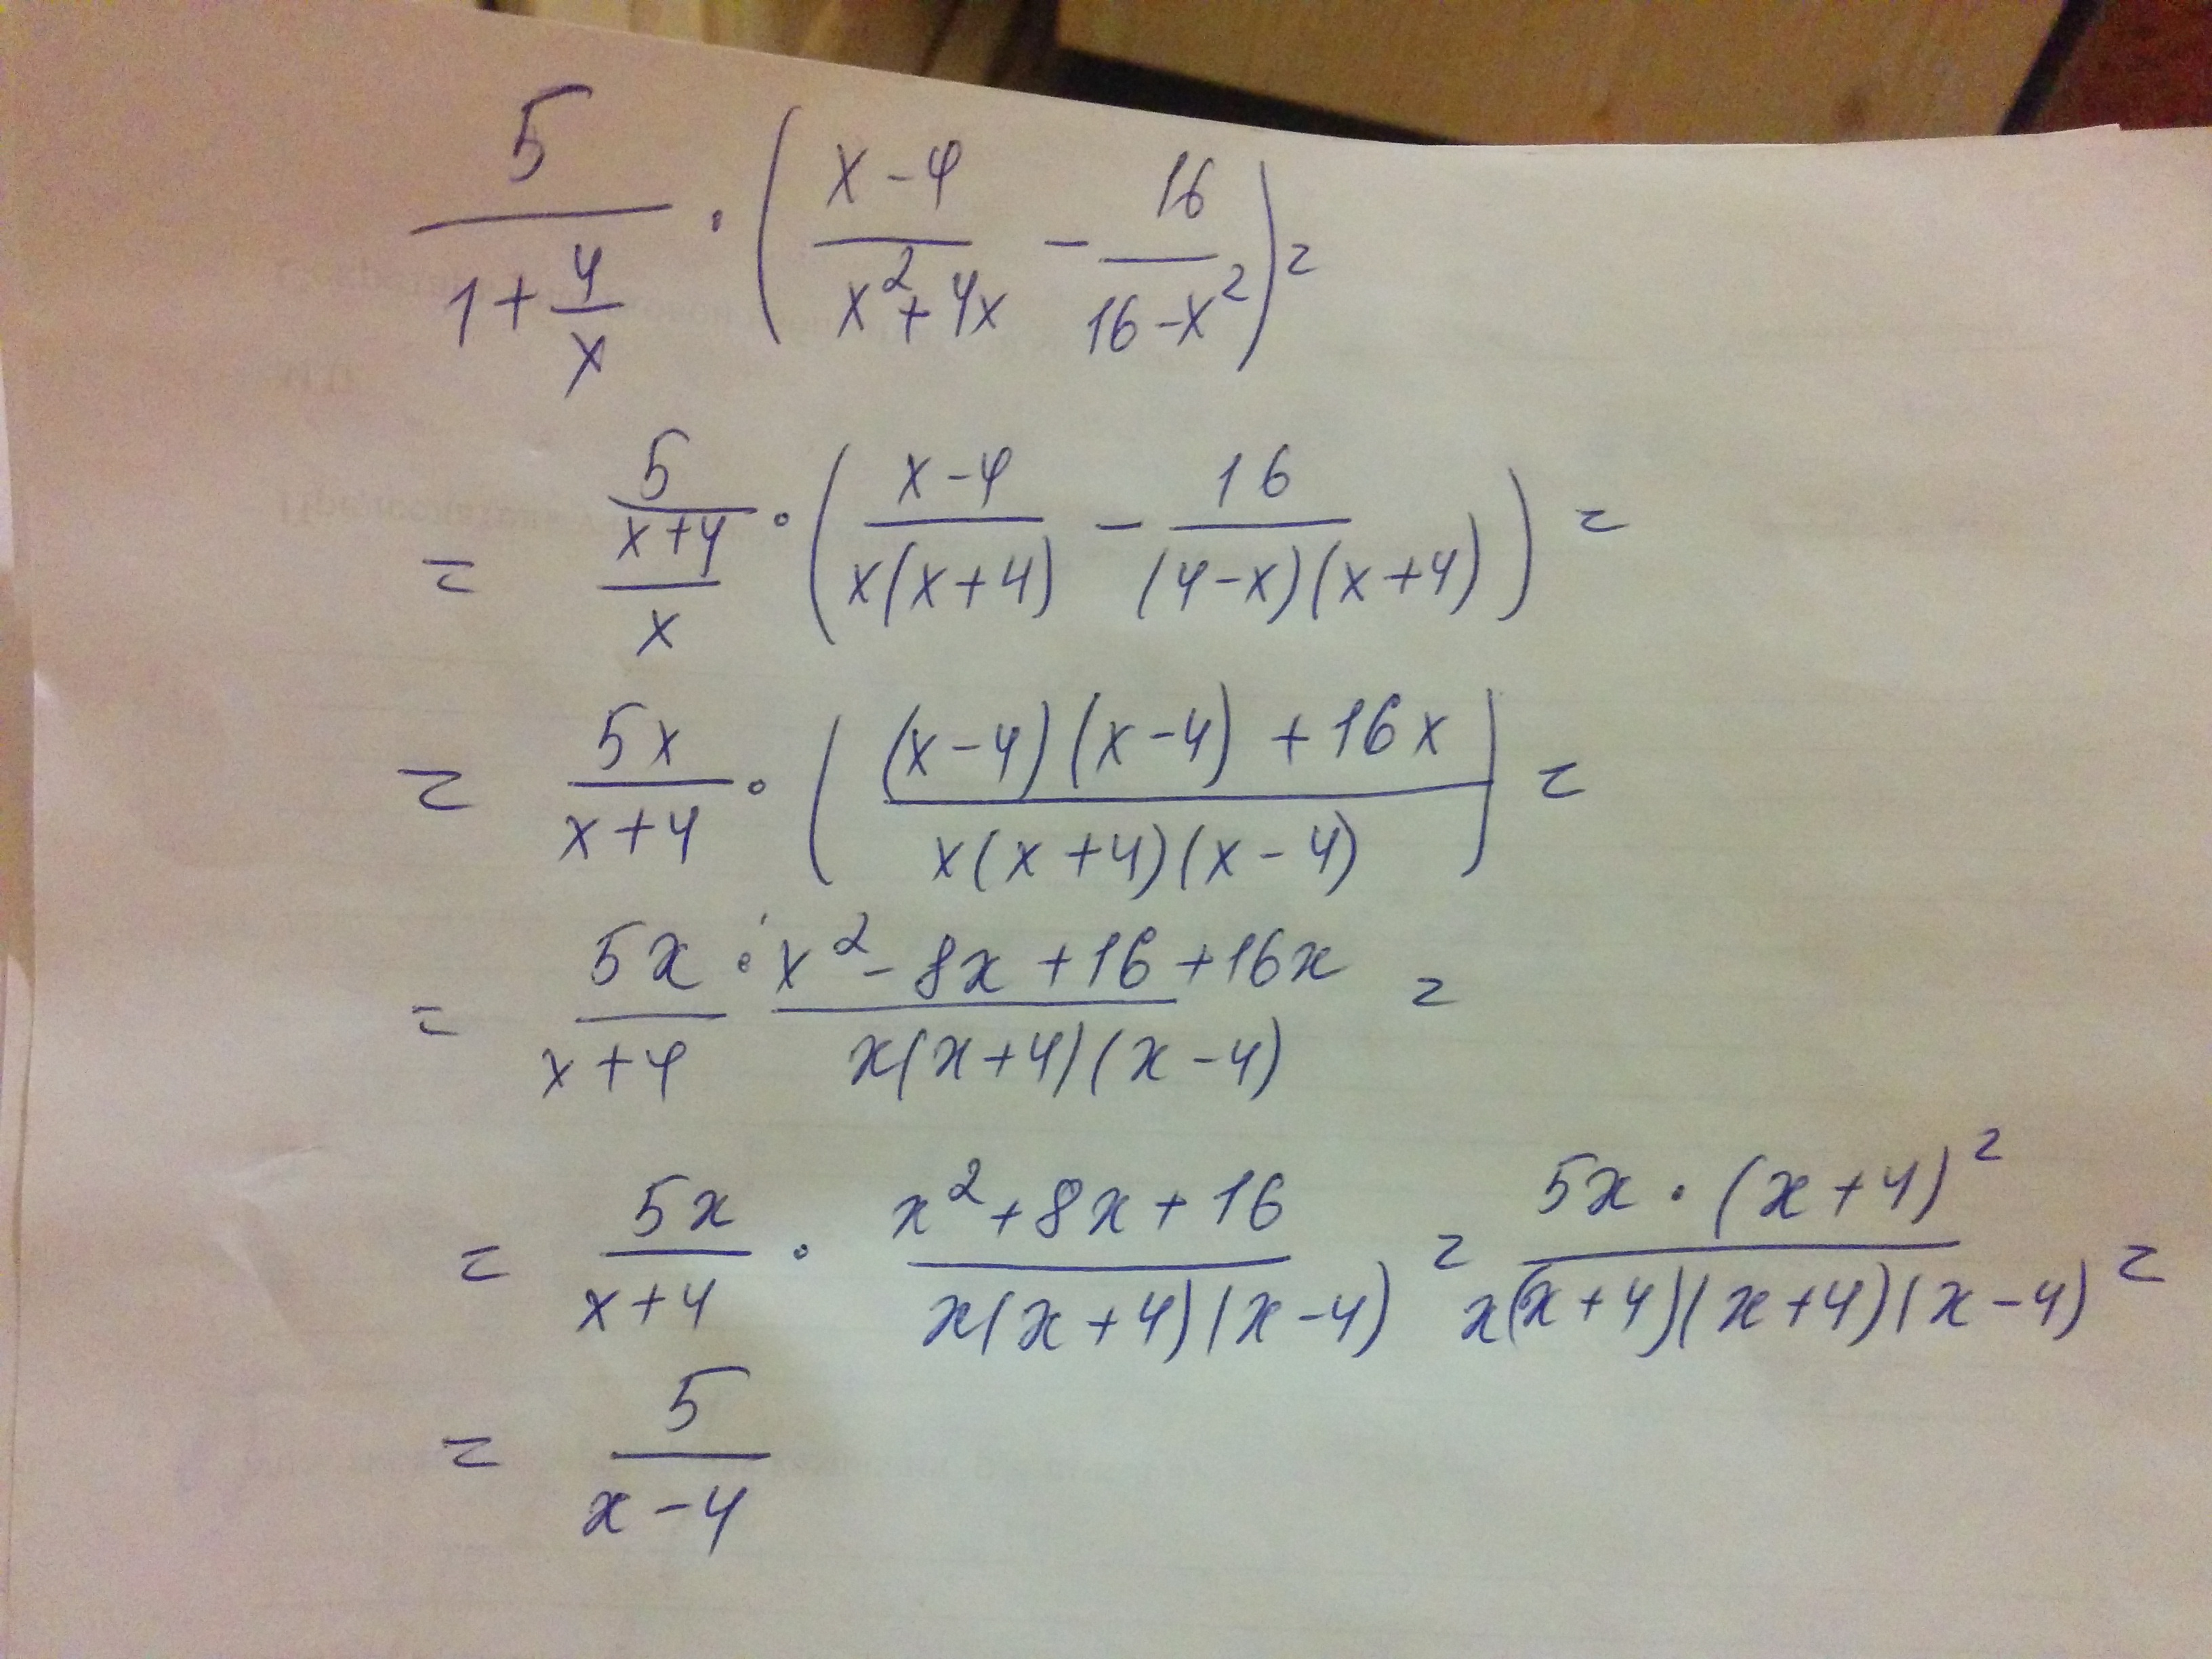 5/(1+4/x) · ((x-4)/(x²+4x) - 16/(16-x²)) =
= 5/((x+4)/x) · ((x-4)/(x(x+4)) - 16/((4-x)(x+4))) =
= 5x/(x+4) · (((x-4)(x-4)+16x)/(x(x+4)(x-4))) =
= 5x/(x+4) · (x²-8x+16+16x)/(x(x+4)(x-4)) =
= 5x/(x+4) · (x²+8x+16)/(x(x+4)(x-4)) = (5x·(x+4)²)/(x(x+4)(x+4)(x-4)) =
= 5/(x-4)